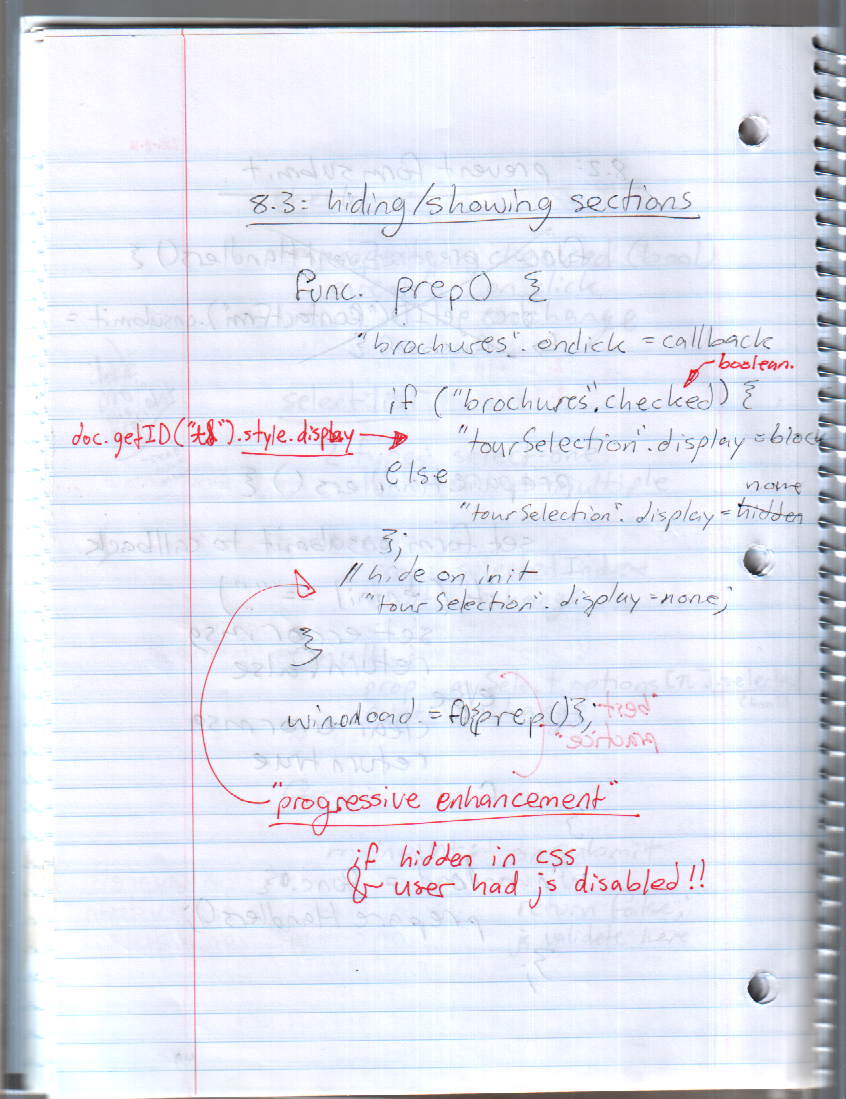 8.3: hiding/showing sections
func. prep() {
"brochures".onclick = callback
boolean.
if ("brochures".checked) {
doc.getID("ts").style.display → "tourSelection".display = block
else
none
"tourSelection". display = hidden
};
// hide on init
"tourSelection". display = none;
}
win.onload = f(){prep()};
"progressive enhancement"
if hidden in css
& user had js disabled!!